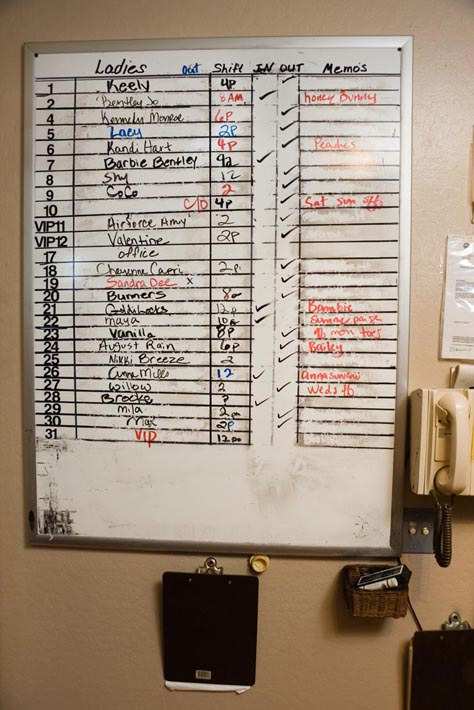 Ladies out Shift IN OUT Memos
1 Keely 4P
2 Bentley Jo 8AM Honey Bunny
4 Kennedy Monroe 6P
5 Lacy 2P
6 Kandi Hart 4P Peaches
7 Barbie Bentley 9a
8 Shy 12
9 CoCo 2
10 C/D 4P Sat Sun
VIP11 Airforce Amy 2
VIP12 Valentine 2P
17 office
18 Cheyenne 2P
19 Sandra Dee x
20 Burners
21 Goldilocks 12p Bambie
22 maya Summer
23 Vanilla 8P
24 August Rain 6p Bailey
25 Nikki Breeze 2
26 12 Anna
27 Willow 2 Weds
28 Brooke
29 mila 2pm
30 Max 2P
31 VIP 12